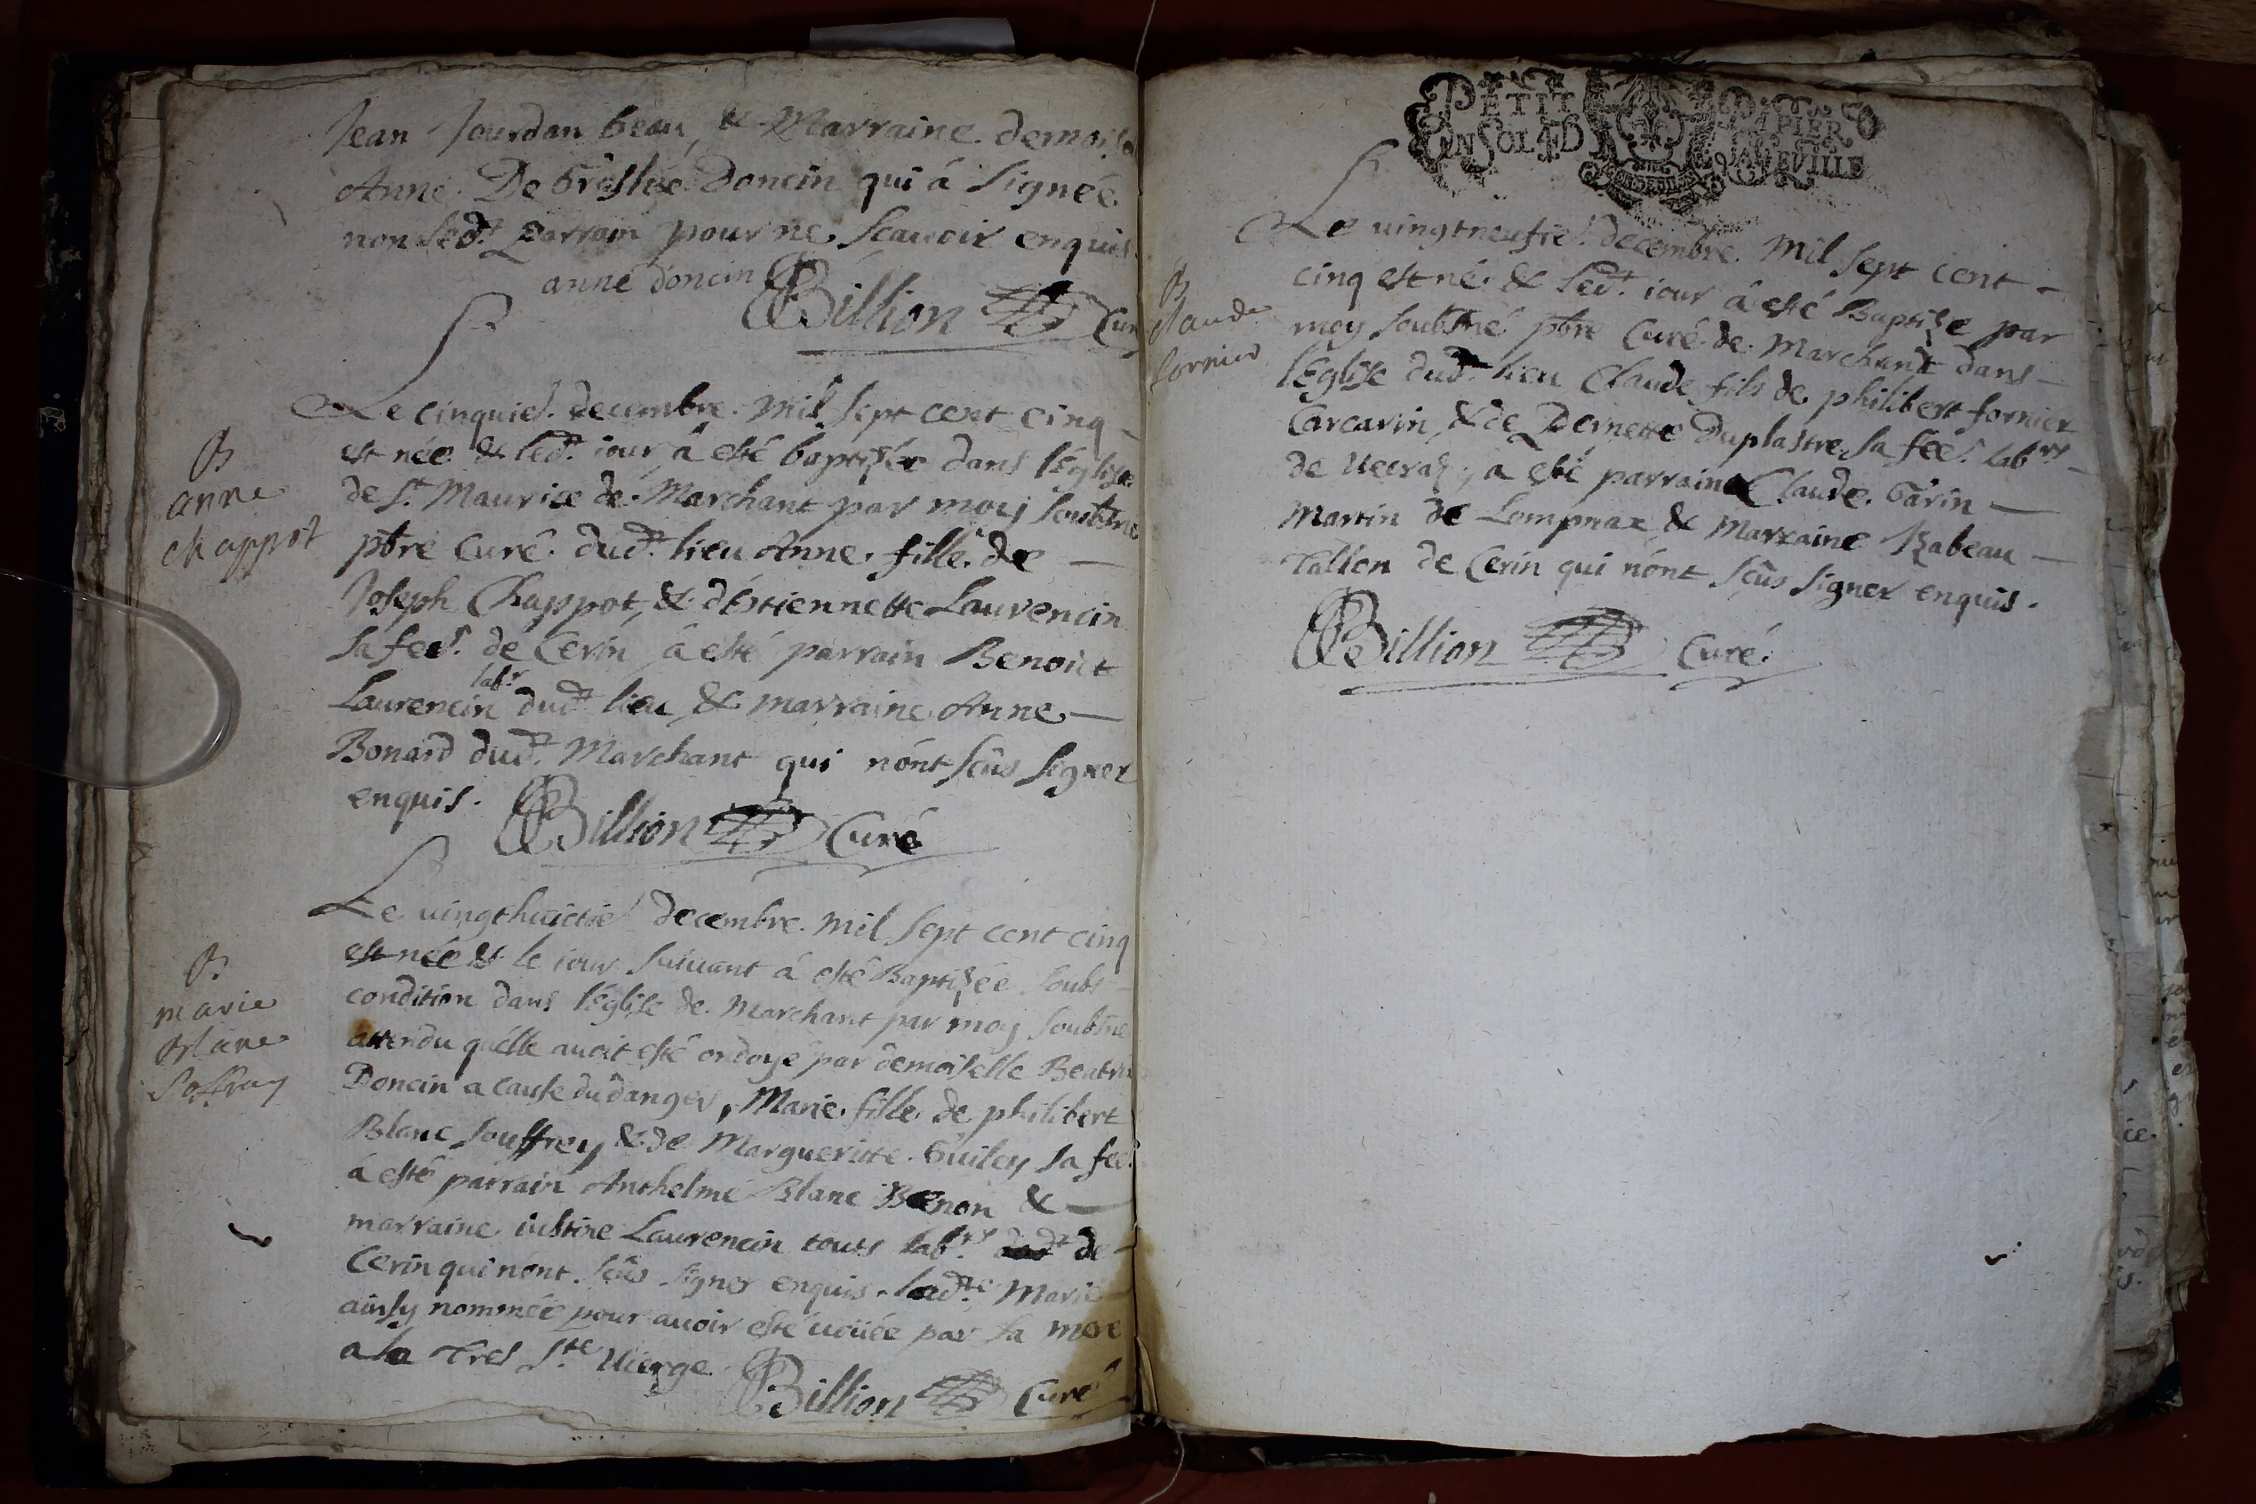 Jean Jourdan beau, & Marraine demois
Anne De Grôslée Doncin qui à signée
non led.t Parrain pour ne scauoir enquis.
anne doncin Billion Cur
Le cinquie.s decembre mil sept cent cinq
est née & led.t iour à esté baptizée dans l'église
B
anne
chappot
de S.t Maurice de Marchant par moy soubsne
pbre curé dud.t lieu Anne fille de
Joseph Chappot, & d'Estiennette Laurencin
sa fee. de Cerin à esté parrain Benoict
labr
Laurencin dud.t lieu & marraine Anne
Bonard dud.t Marchant qui nónt sçûs signer
enquis.
Billion Curé
Le uingthuictie decembre mil sept cent cinq
est née & le iour suiuant à esté Baptizée soubs
B
marie
blanc
soffray
condition dans l'église de Marchant par moy soubsne
attendu qu'elle auoit esté ondoyé par demoiselle Beatri
Doncin a cause du danger, Marie fille de philibert
Blanc souffrey & de Margueritte Guiley sa fee.
à esté parrain Anthelme Blanc Benon &
marraine iustine Laurencin touts labrs de
Cerin qui nónt sçûs signer enquis. lad.te Marie
ainsy nommée pour auoir esté uoüée par sa mere
a la Tres S.te Uierge.
Billion Curé
PETIT PAPIER
UN SOL 4D LA FEVILLE
Le uingtneufie decembre mil sept cent
cinq est né & led.t iour à esté Baptize par
B
claude
fornier
moy soubsné pbre Curé de Marchant dans
l'Eglise dud.t lieu Claude fils de philibert fornier
Carcarin, & de Pernette Duplastre sa fee. labrs
de, a esté parrain Claude Garin
Martin de Lompnax & Marraine Rabeau
Tallon de Cerin qui nónt sçûs signer enquis.
Billion Curé.